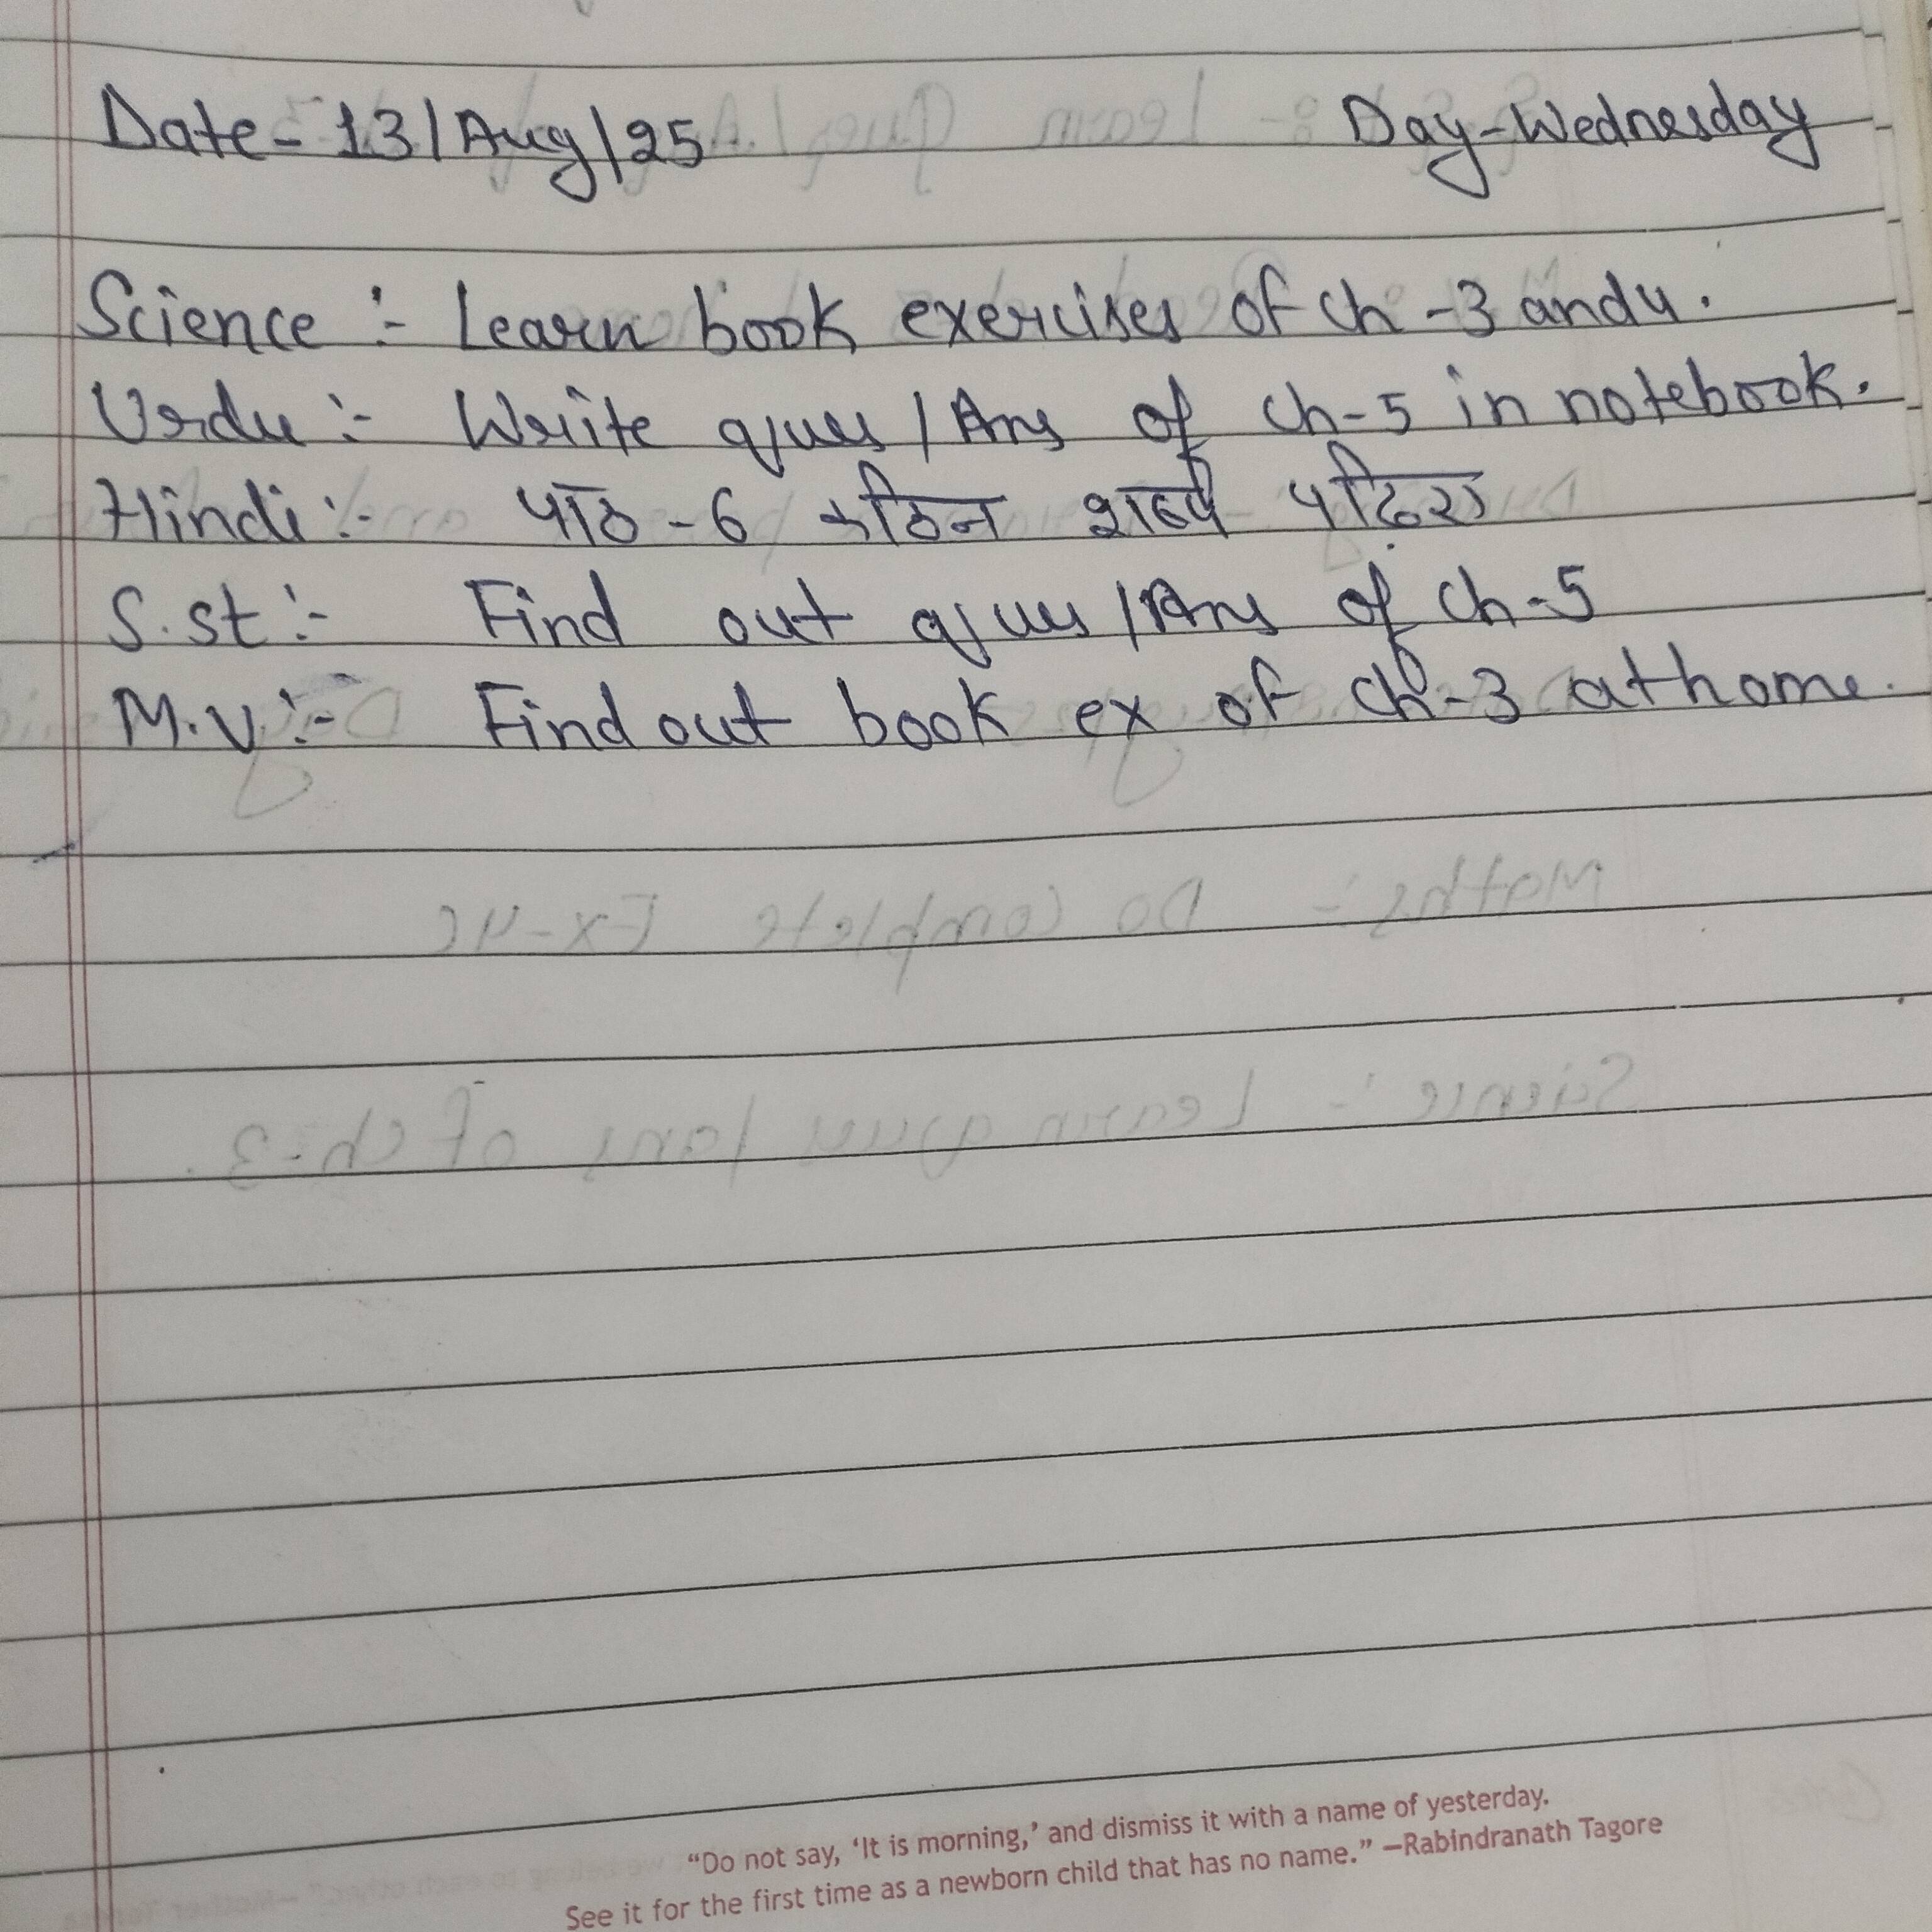 Date - 13/Aug/25 Day - Wednesday
Science :- Learn book exercises of Ch -3 and 4.
Urdu :- Write ques / Ans of Ch-5 in notebook.
Hindi :- पाठ -6 कठिन शब्द पढिए
S.st :- Find out ques / Ans of Ch-5
M.V. :- Find out book ex of Ch-3 at home.
Maths :- Do complete Ex-4C
Science :- Learn ques / ans of Ch-3.
“Do not say, ‘It is morning,’ and dismiss it with a name of yesterday.
See it for the first time as a newborn child that has no name.” —Rabindranath Tagore